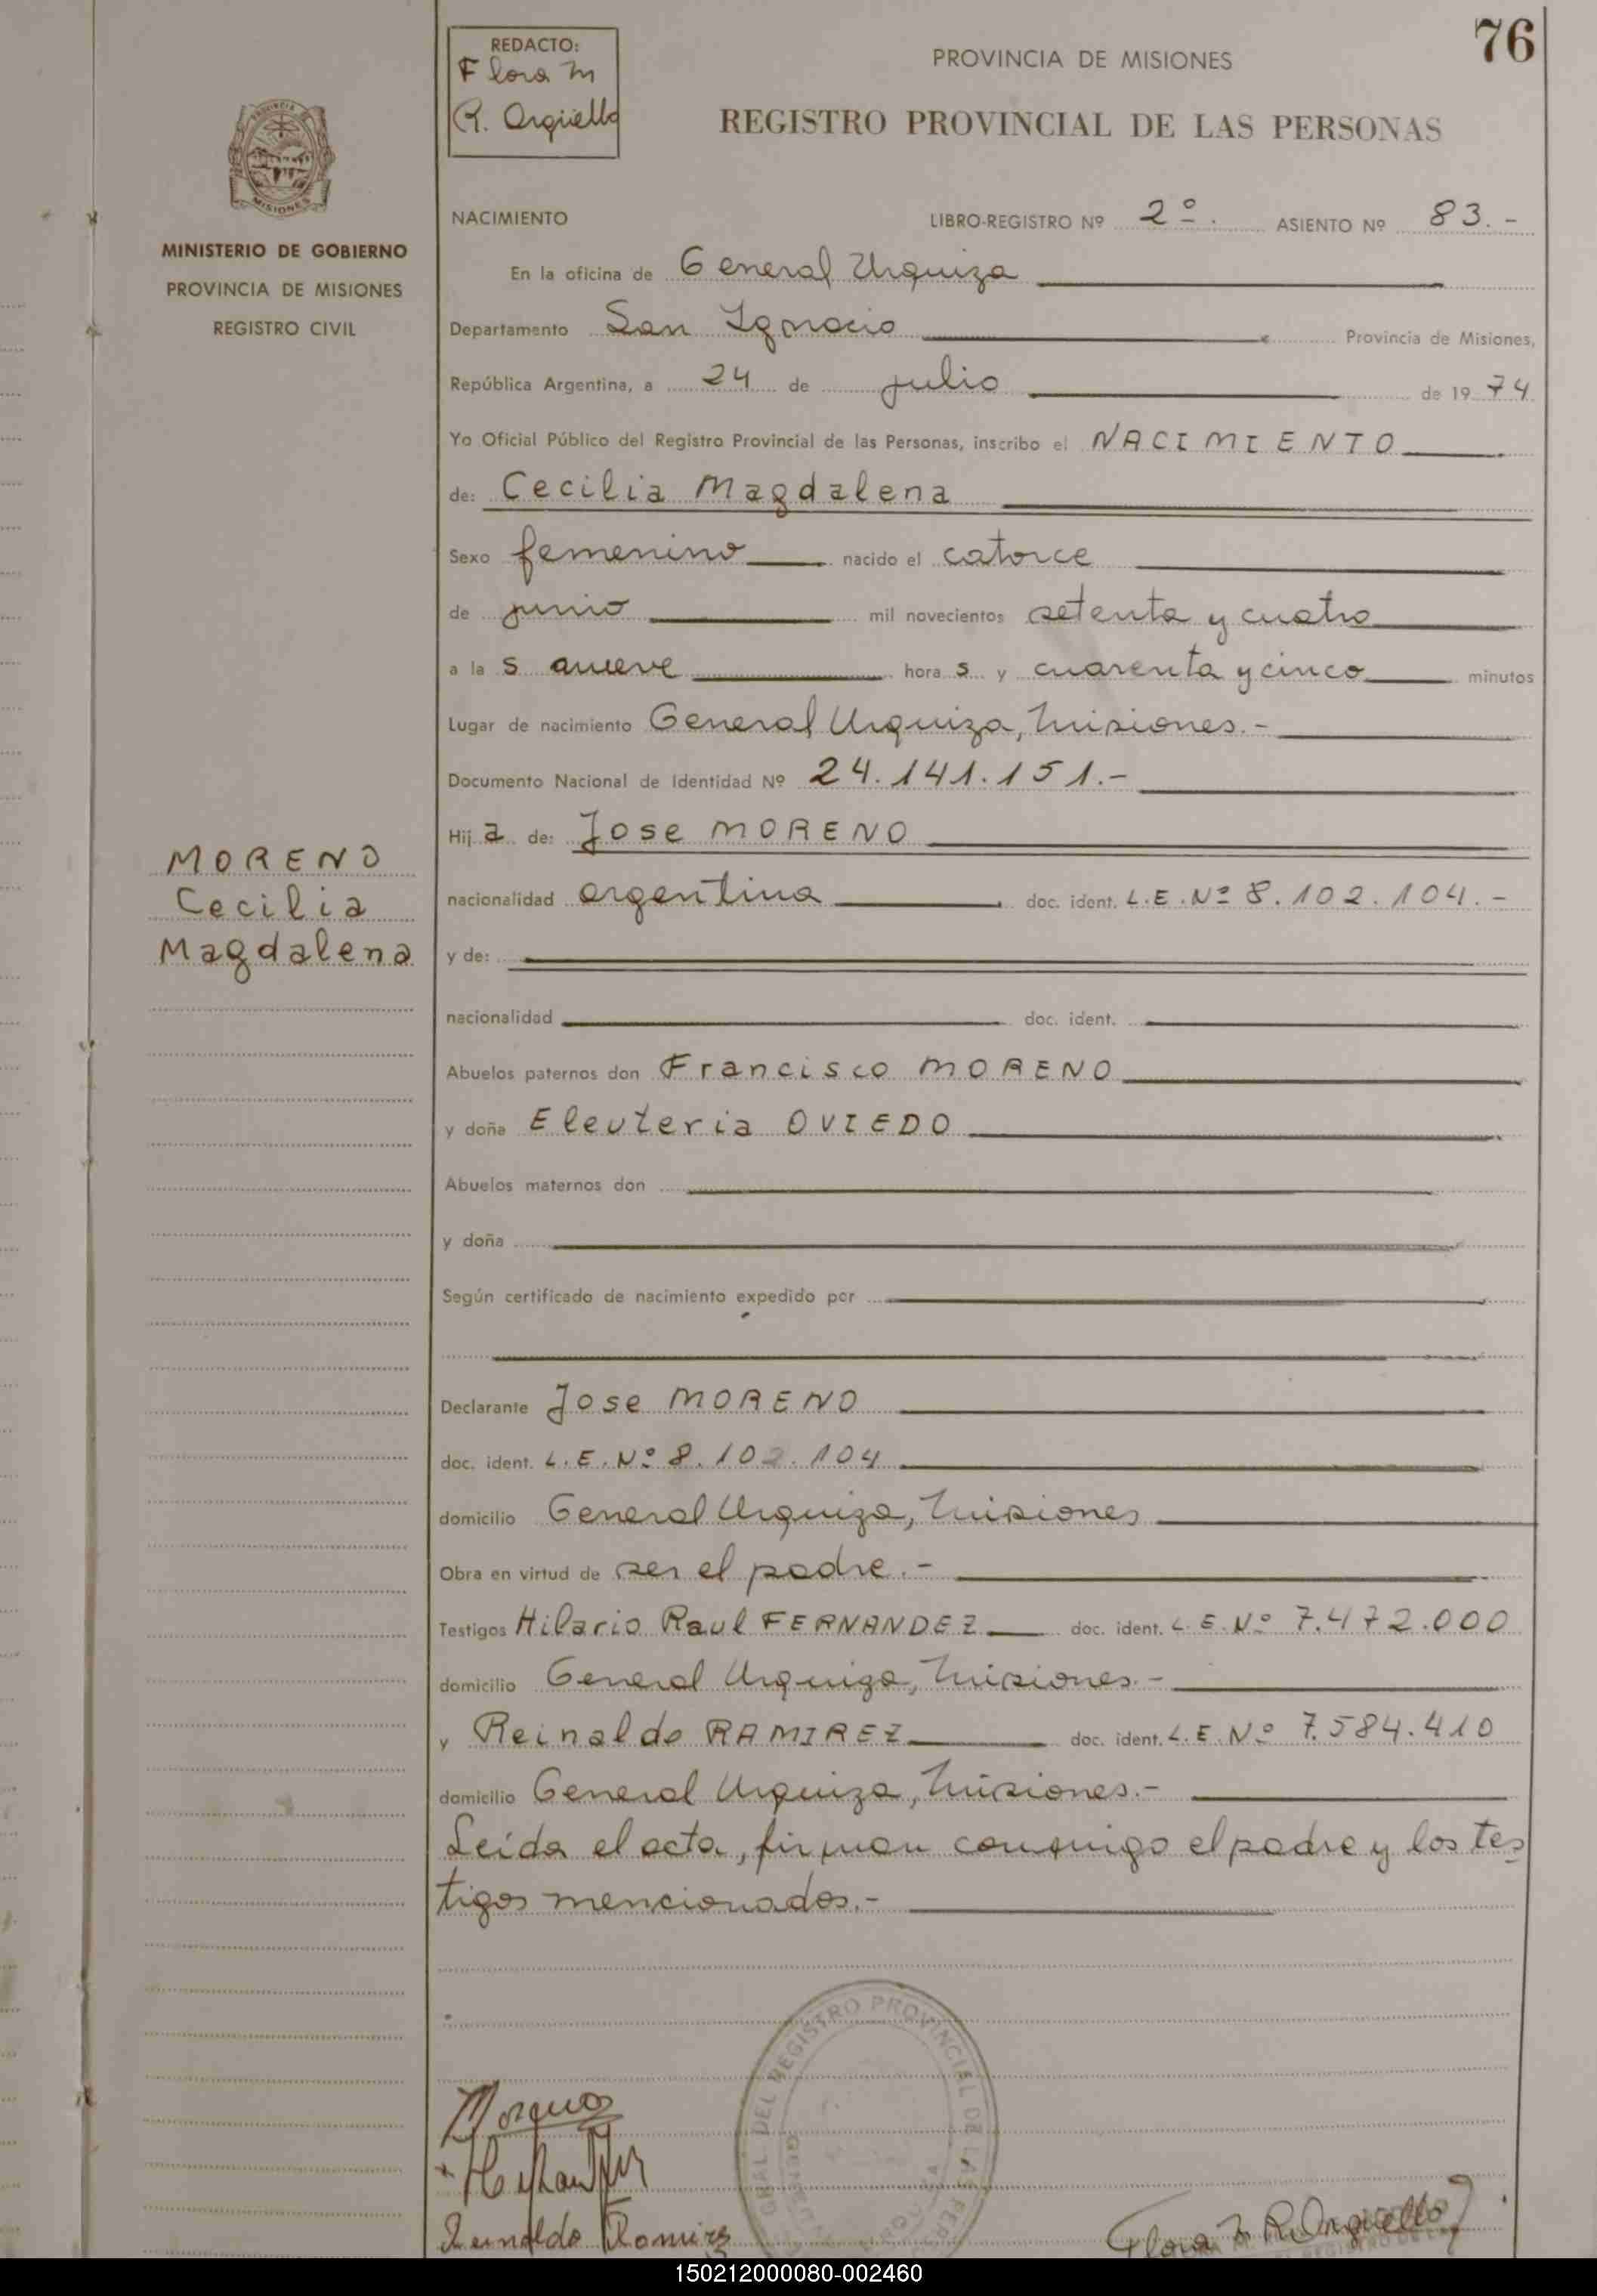 76
REDACTO:
Flora M
R. Argüello
PROVINCIA DE MISIONES
REGISTRO PROVINCIAL DE LAS PERSONAS
PROVINCIA DE
MISIONES
MINISTERIO DE GOBIERNO
PROVINCIA DE MISIONES
REGISTRO CIVIL
NACIMIENTO LIBRO-REGISTRO Nº 2º. ASIENTO Nº 83.-
En la oficina de General Urquiza
Departamento San Ignacio Provincia de Misiones,
República Argentina, a 24 de julio de 1974
Yo Oficial Público del Registro Provincial de las Personas, inscribo el NACIMIENTO
de: Cecilia Magdalena
Sexo femenino nacido el catorce
de junio mil novecientos setenta y cuatro
a la s nueve hora s y cuarenta y cinco minutos
Lugar de nacimiento General Urquiza, Misiones.-
Documento Nacional de Identidad Nº 24.141.151.-
Hij a de: Jose MORENO
MORENO
Cecilia
Magdalena
nacionalidad argentina doc. ident. L.E.Nº 8.102.104.-
y de:
nacionalidad doc. ident.
Abuelos paternos don Francisco MORENO
y doña Eleuteria OVIEDO
Abuelos maternos don
y doña
Según certificado de nacimiento expedido por
Declarante Jose MORENO
doc. ident. L.E.Nº 8.102.104
domicilio General Urquiza, Misiones
Obra en virtud de ser el padre.-
Testigos Hilario Raul FERNANDEZ doc. ident. L.E.Nº 7.472.000
domicilio General Urquiza, Misiones.-
y Reinaldo RAMIREZ doc. ident. L.E.Nº 7.584.410
domicilio General Urquiza, Misiones.-
Leída el acta, firman conmigo el padre y los tes
tigos mencionados.-
GRAL DEL REGISTRO PROVINCIAL DE LAS PERS
Moreno
Reinaldo Ramirez
Flora M R. Argüello
150212000080-002460